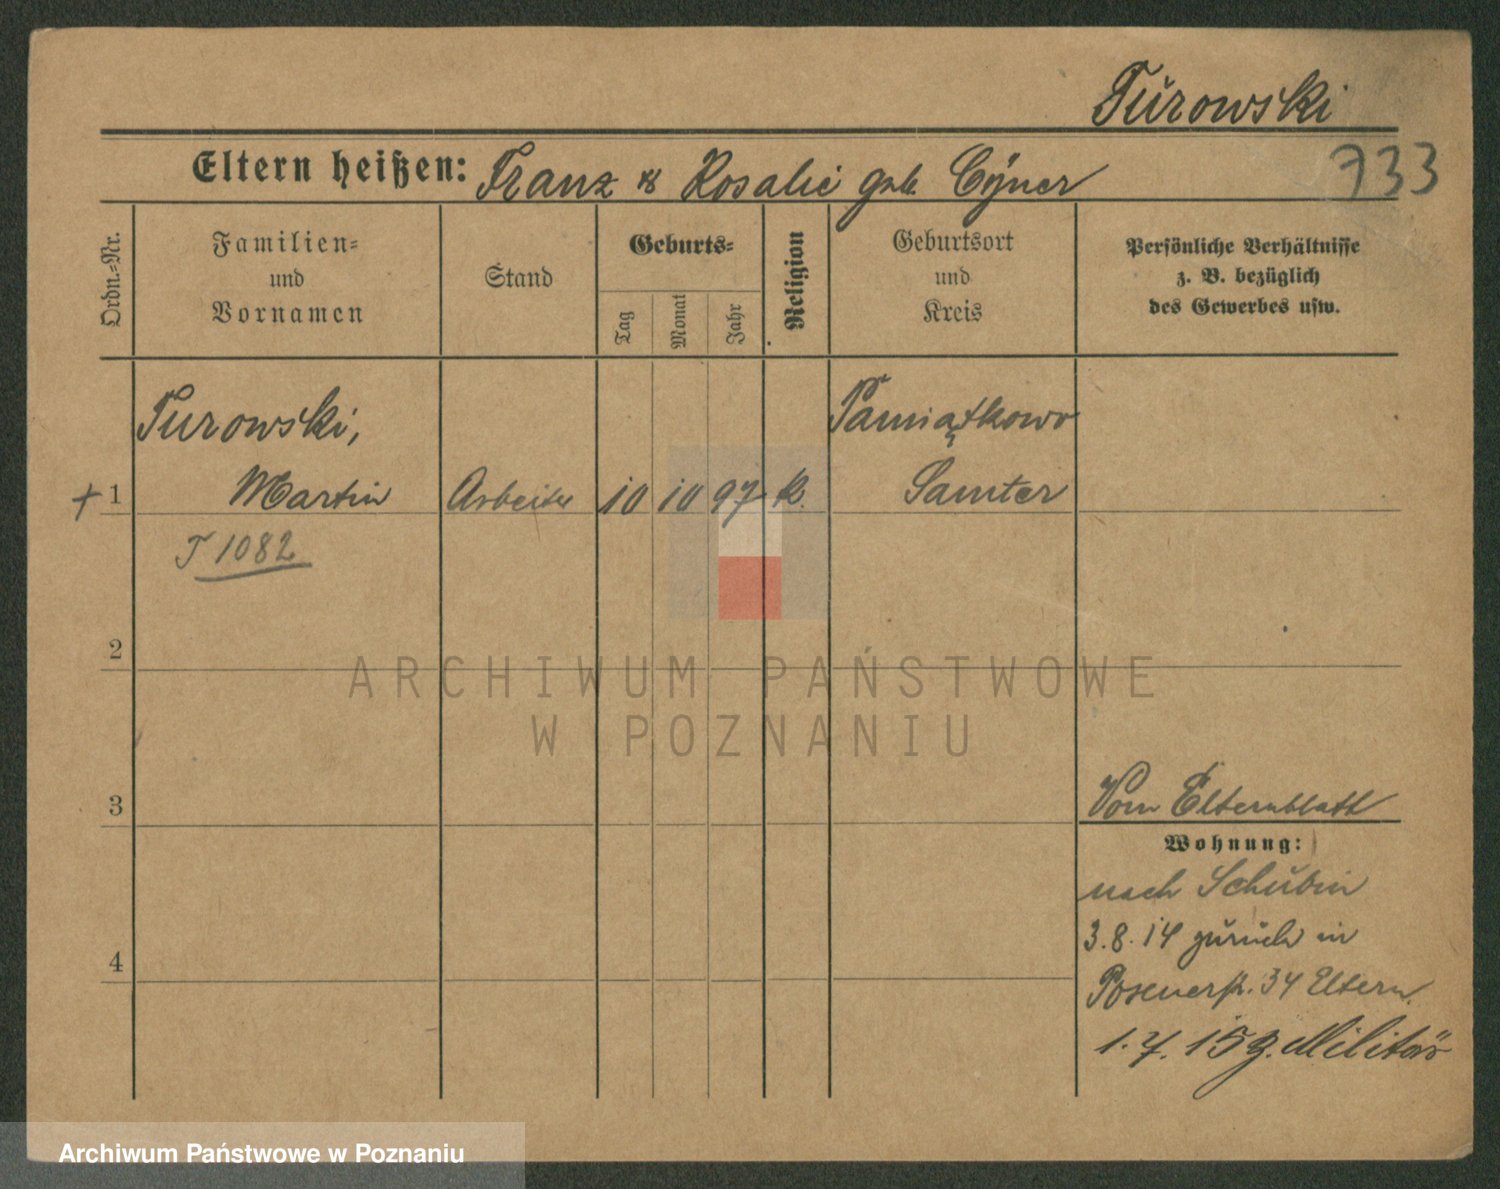 Turowski
Eltern heißen: Franz & Rosalie geb. Cyner
733
Ordn.-Nr.
Familien-
und
Vornamen
Stand
Geburts-
Tag
Monat
Jahr
Religion
Geburtsort
und
Kreis
Persönliche Verhältnisse
z. B. bezüglich
des Gewerbes usw.
Turowski,
Pamiątkowo
+ 1 Martin Arbeiter 10 10 97 k. Samter
T 1082
2
ARCHIWUM PAŃSTWOWE
W POZNANIU
3
Vom Elternblatt
Wohnung:
nach Schubin
3.8.14 zurück in
4
Posenerstr. 34 Eltern.
1.7.15 z. Militär
Archiwum Państwowe w Poznaniu